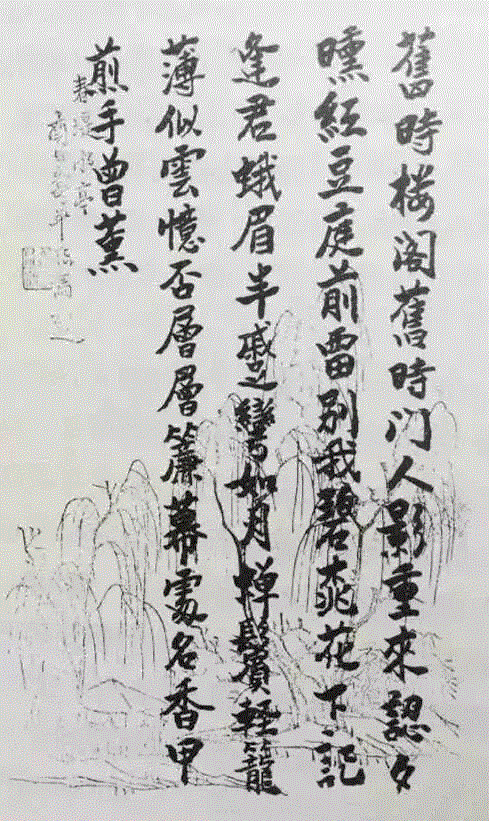 舊時楼阁舊時门人影重來認夕
曛紅豆庭前留别我碧桃花下記
逢君蛾眉半蹙彎如月軃鬢輕籠
薄似雲憶否層層簾幕處名香甲
煎手曾薰